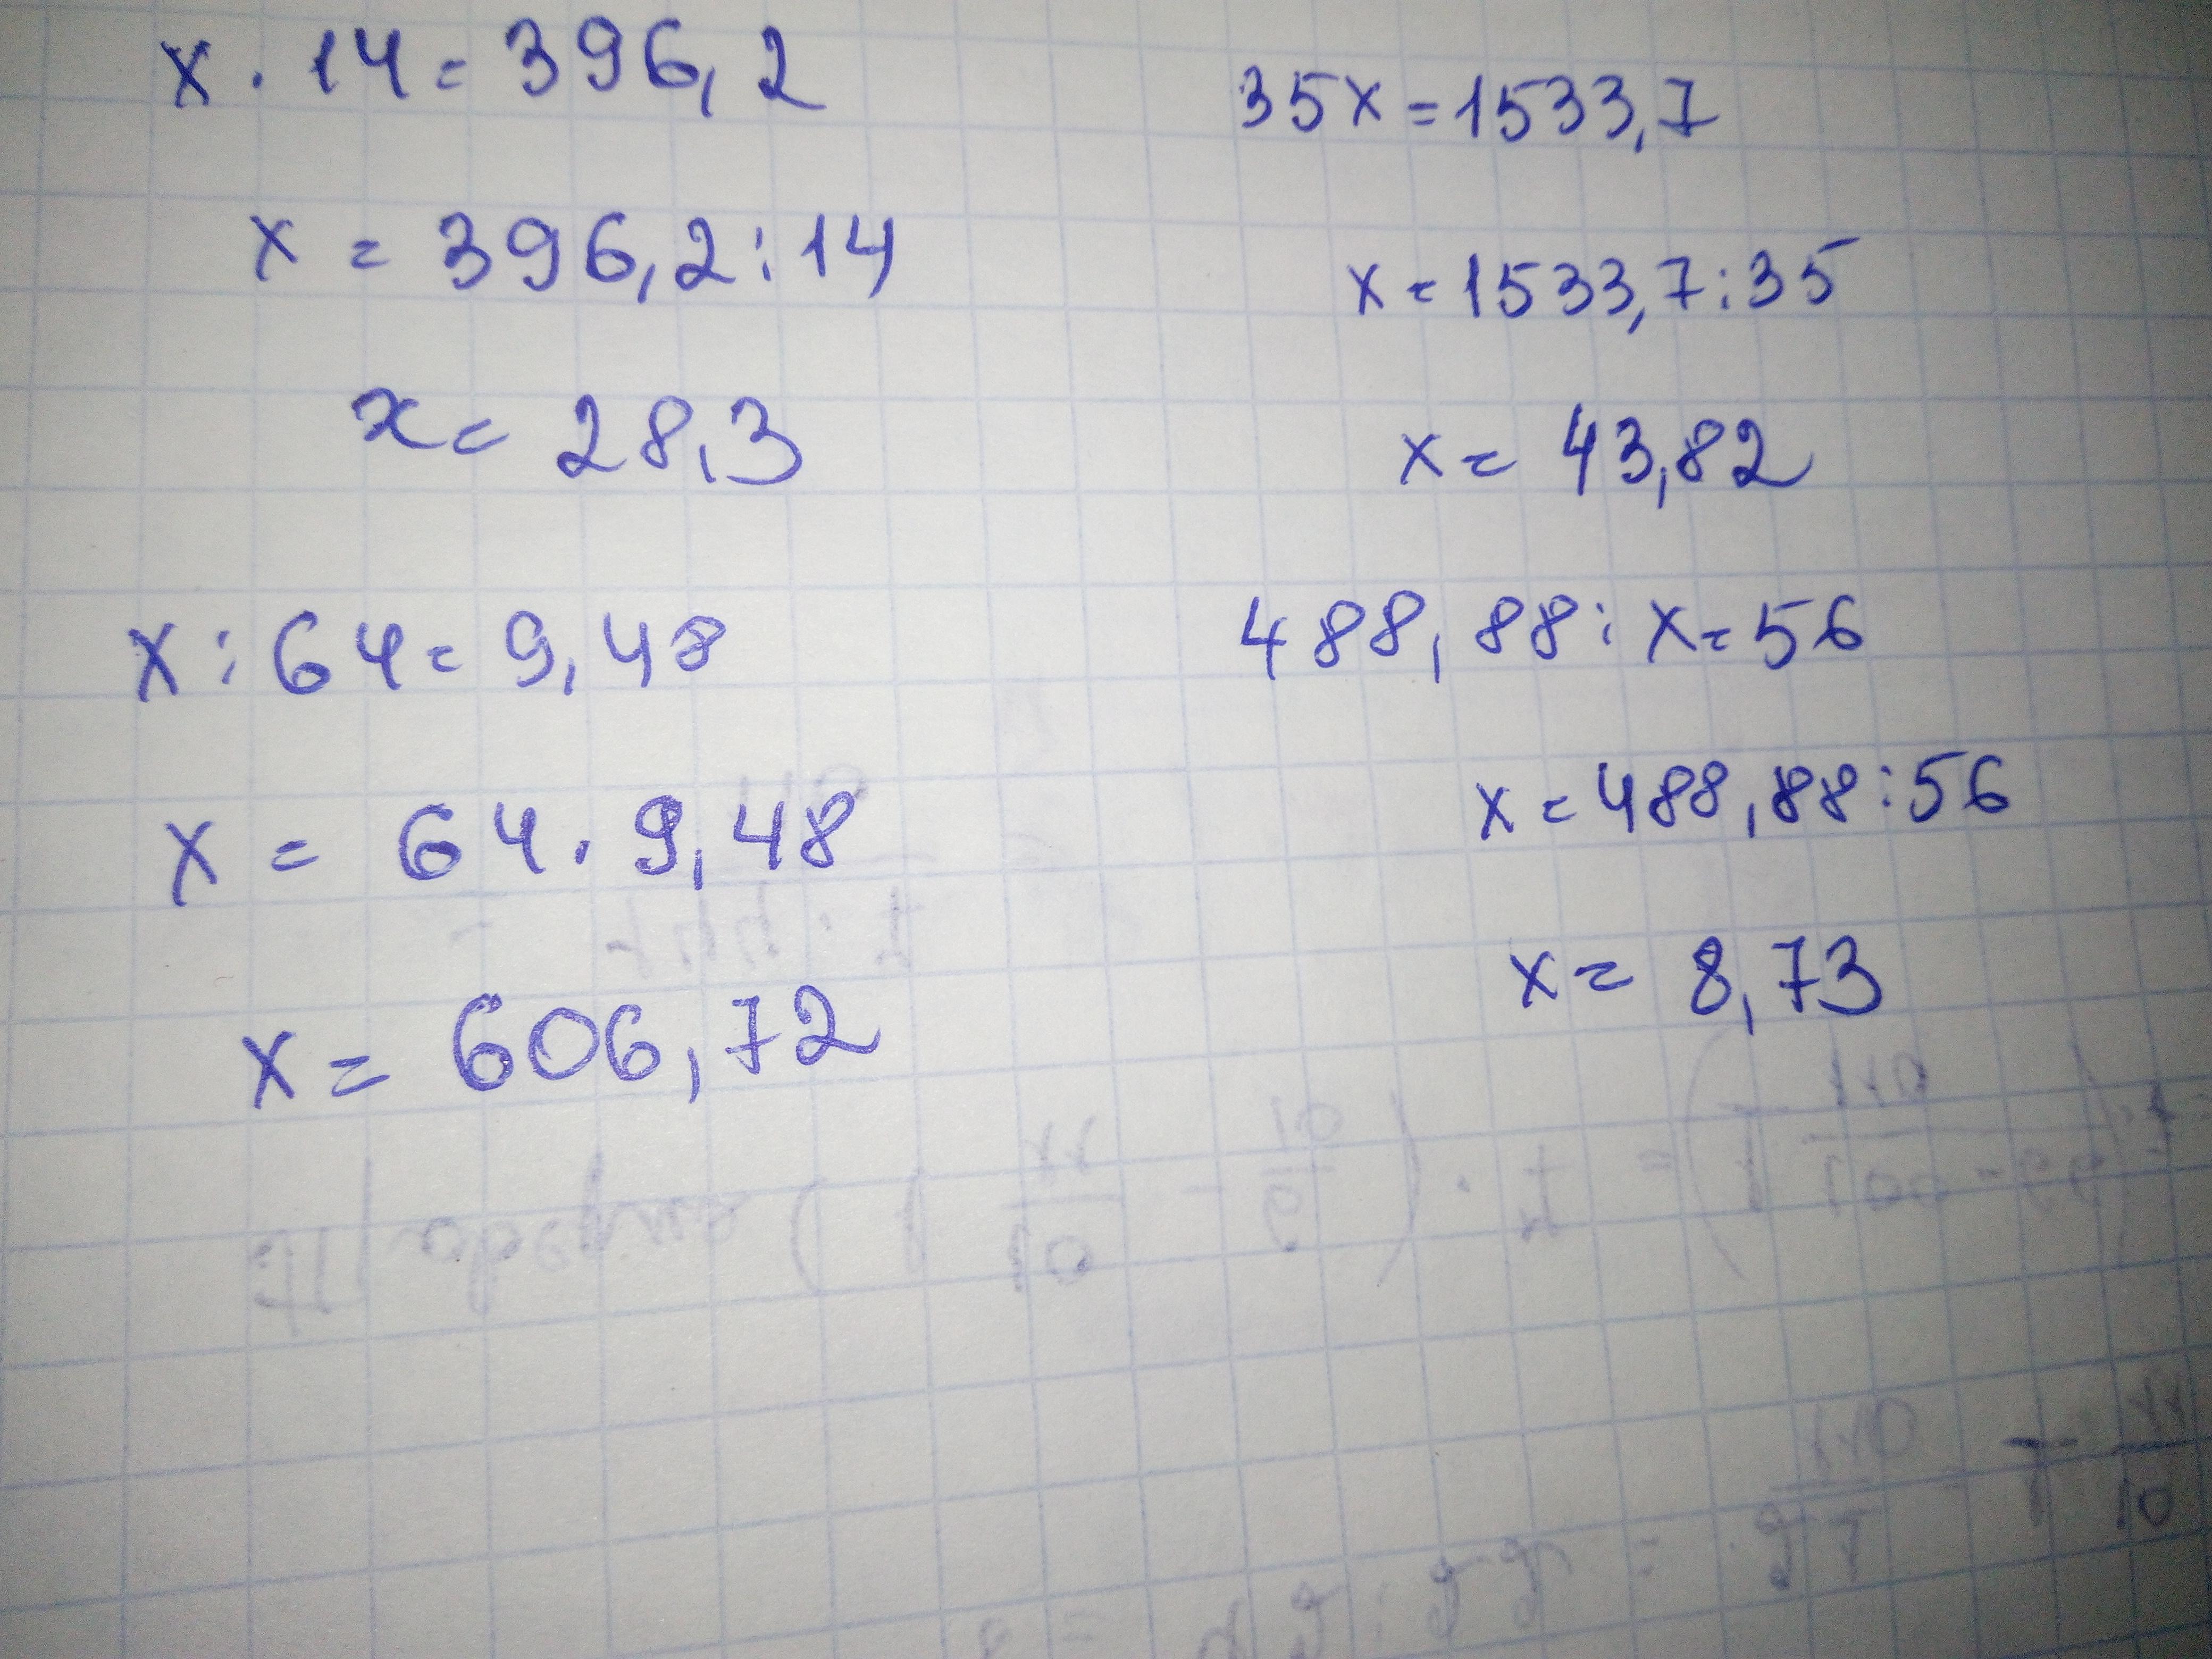 x · 14 = 396,2
x = 396,2 : 14
x = 28,3
x : 64 = 9,48
x = 64 · 9,48
x = 606,72
35x = 1533,7
x = 1533,7 : 35
x = 43,82
488,88 : x = 56
x = 488,88 : 56
x = 8,73